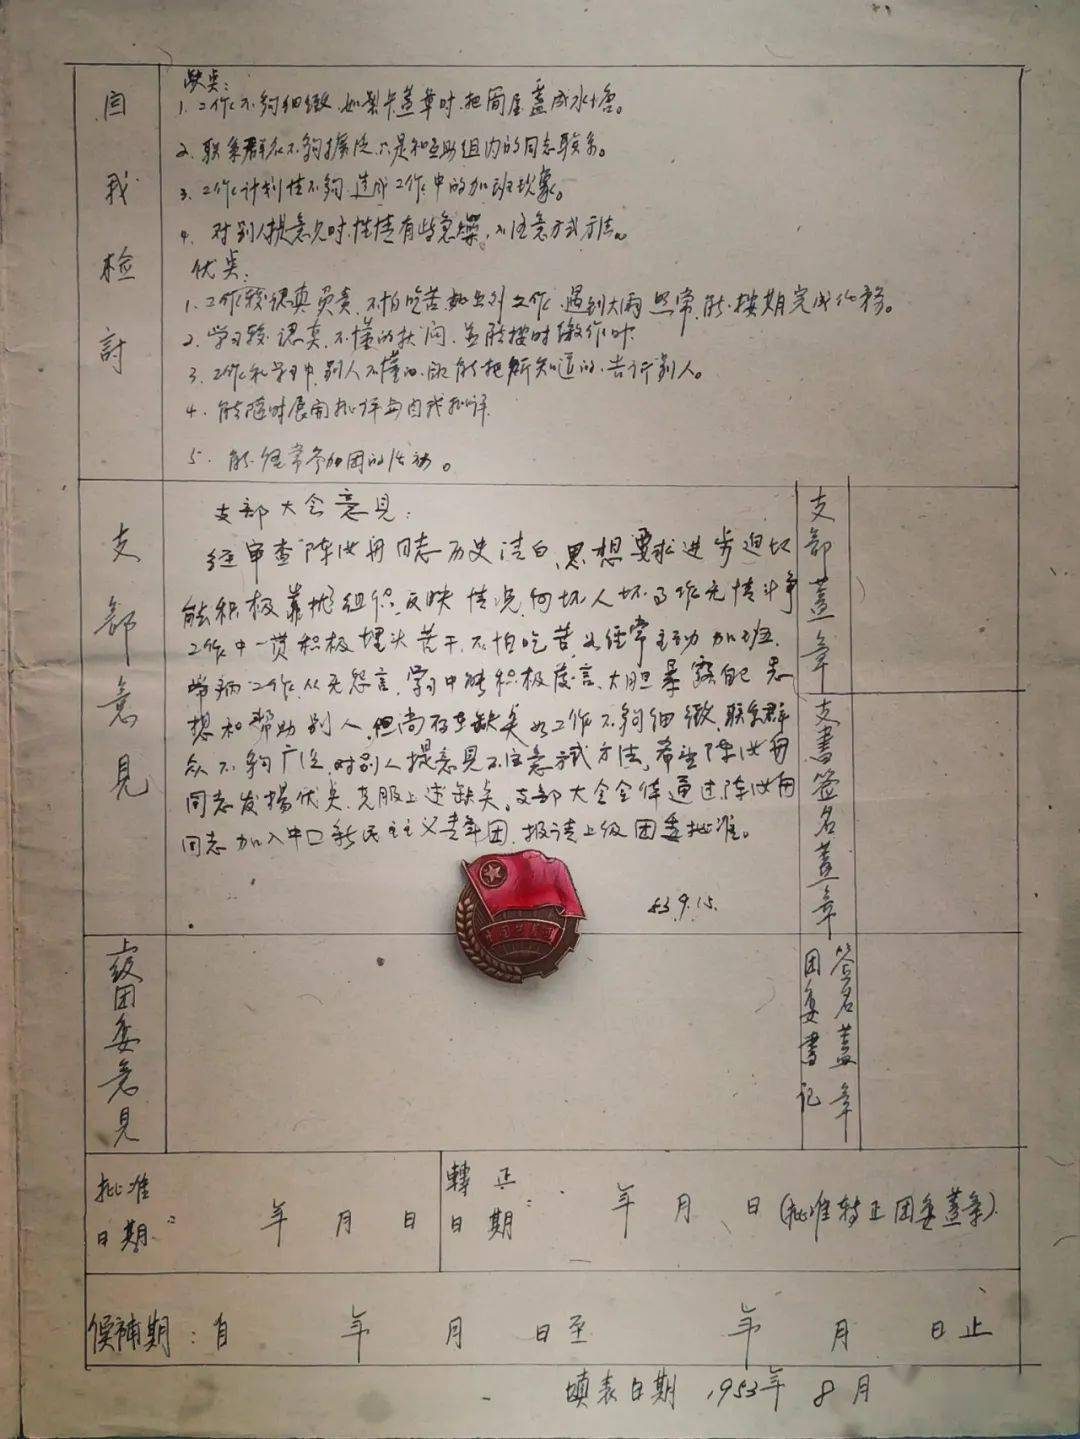 自我检討
缺点:
1. 工作不夠细緻.如梨卡蓋章时.把
2. 联系群众不夠广泛.只是和互助组内的同志联系。
3. 工作计划性不夠.造成工作中的加班现象。
4. 对别人提意见时.性情有些急燥.不注意方式方法。
优点:
1. 工作较認真负责.不怕吃苦.工作.遇到大雨照常.能按期完成任務。
2. 学习较認真.不懂的就问.並能按时做作业
3. 工作和学习中.别人不懂的.能把所知道的.告诉别人。
4. 能随时展開批评与自我批评
5. 能经常参加团的活动。
支部意見
支部大会意见:
经审查陈汝舟同志历史清白、思想要求进步迫切
能积极靠拢组织.反映情况.向坏人坏事作无情斗争
工作中一贯积极埋头苦干.不怕吃苦.又经常主动加班.
带病工作从无怨言.学习中能积极发言、大胆暴露自己思
想和帮助别人.但尚存在缺点如工作不夠细緻.联系群
众不夠广泛.对别人提意见不注意方式方法.希望陈汝舟
同志发揚优点.克服上述缺点。支部大会全体通过陈汝舟
同志加入中国新民主主义青年团.报请上级团委批准。
53.9.15.
支部蓋章
支書签名蓋章
上级团委意見
团委書记
签名蓋章
批准日期:
年 月 日
轉正日期:
年 月 日(批准转正团委蓋章)
候補期:自 年 月 日至 年 月 日止
填表日期 1953年 8月